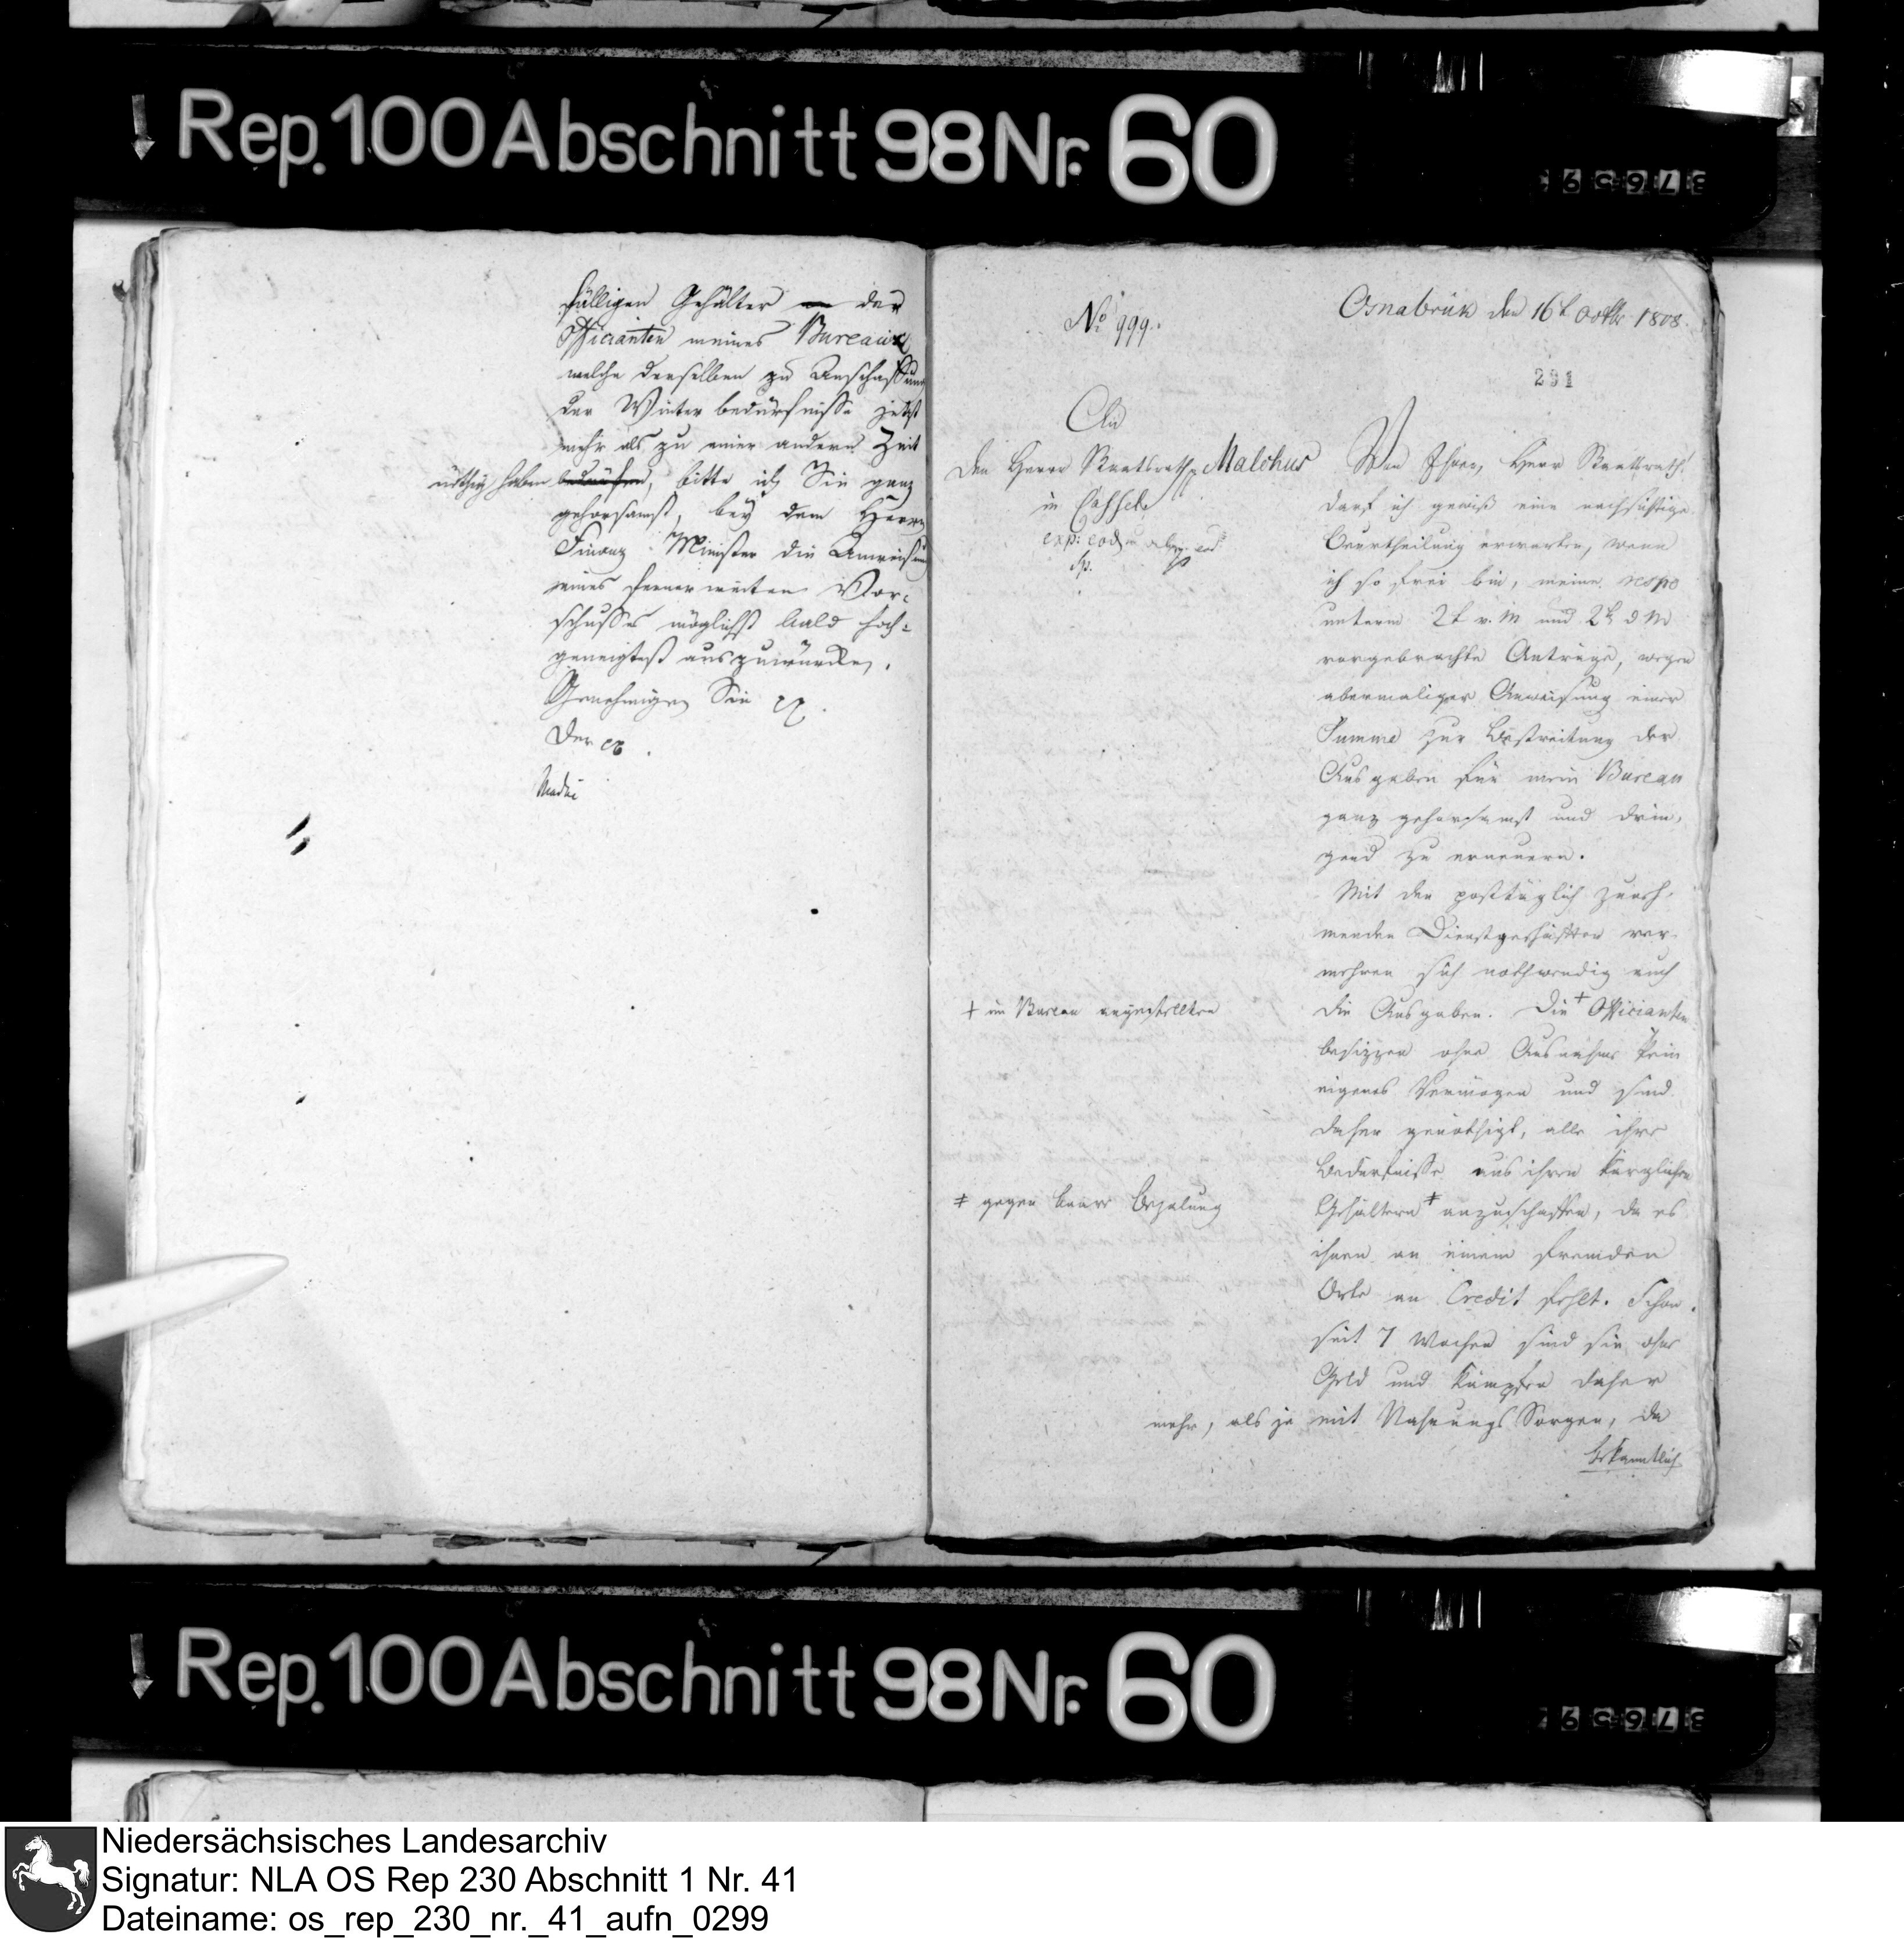 Rep. 100 Abschnitt 98 Nr. 60
fälligen Gehälter der
Officianten meines Bureaux
welche dieselben zu Anschaffung
der Winter bedürfnisse jetzt
mehr als zu einer andern Zeit
nöthig haben bedürfen, bitte ich Sie ganz
gehorsamst, bey dem Herrn
Finanz-Minister die Anweisung
eines fernerweiten Vor-
schusses möglichst bald hoch-
geneigtest auszuwürken.
Genehmigen Sie
Der
No 999.
Osnabrük den 16t Octbr 1808.
291
An
den Herrn Staatsrath Malchus
in Cassel
exp: eod:
Von Ihnen, Herr Staatsrath!
darf ich gewiß eine nachsichtige
Beurtheilung erwarten, wenn
ich so frei bin, meine resp
unterm 2t v. M und 2t d M
vorgebrachte Anträge, wegen
abermaliger Anweisung einer
Summe zur Bestreitung der
Ausgaben für mein Bureau
ganz gehorsamst und drin-
gend zu erneuern.
Mit den posttäglich zuneh-
menden Dienstgeschäften ver-
mehren sich nothwendig auch
+ im Bureau angestellten
die Ausgaben. Die + Officianten
besizzen ohne Ausnahme kein
eigenes Vermögen und sind
daher genöthigt, alle ihre
Bedürfnisse aus ihren kärglichen
‡ gegen baare Bezalung
Gehältern ‡ anzuschaffen, da es
ihnen an einem fremden
Orte an Credit fehlt. Schon
seit 7 Wochen sind sie ohne
Geld und kämpfen daher
mehr, als je mit Nahrungs Sorgen, da
bekanntlich
Rep. 100 Abschnitt 98 Nr. 60
Niedersächsisches Landesarchiv
Signatur: NLA OS Rep 230 Abschnitt 1 Nr. 41
Dateiname: os_rep_230_nr._41_aufn_0299